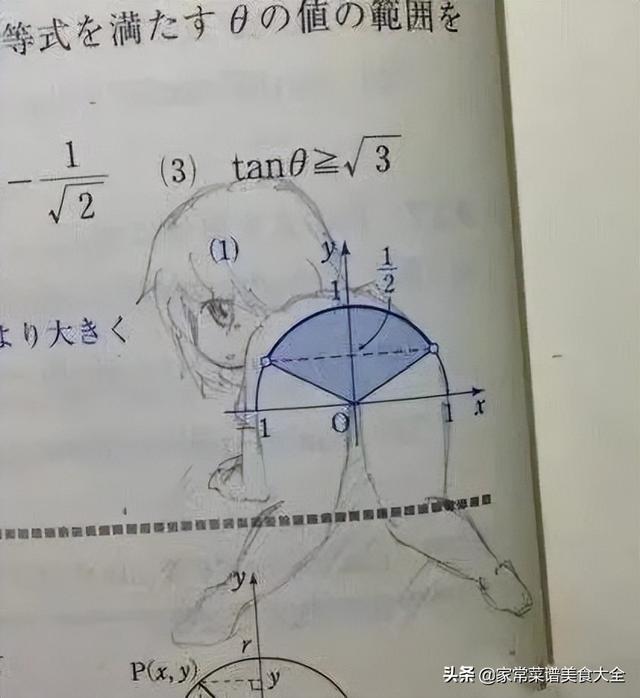 等式を満たすθの値の範囲を
-1/√2 (3) tanθ≧√3
(1)
y
1
1/2
より大きく
-1
O
1
x
y
r
P(x, y)
y
头条 @家常菜谱美食大全